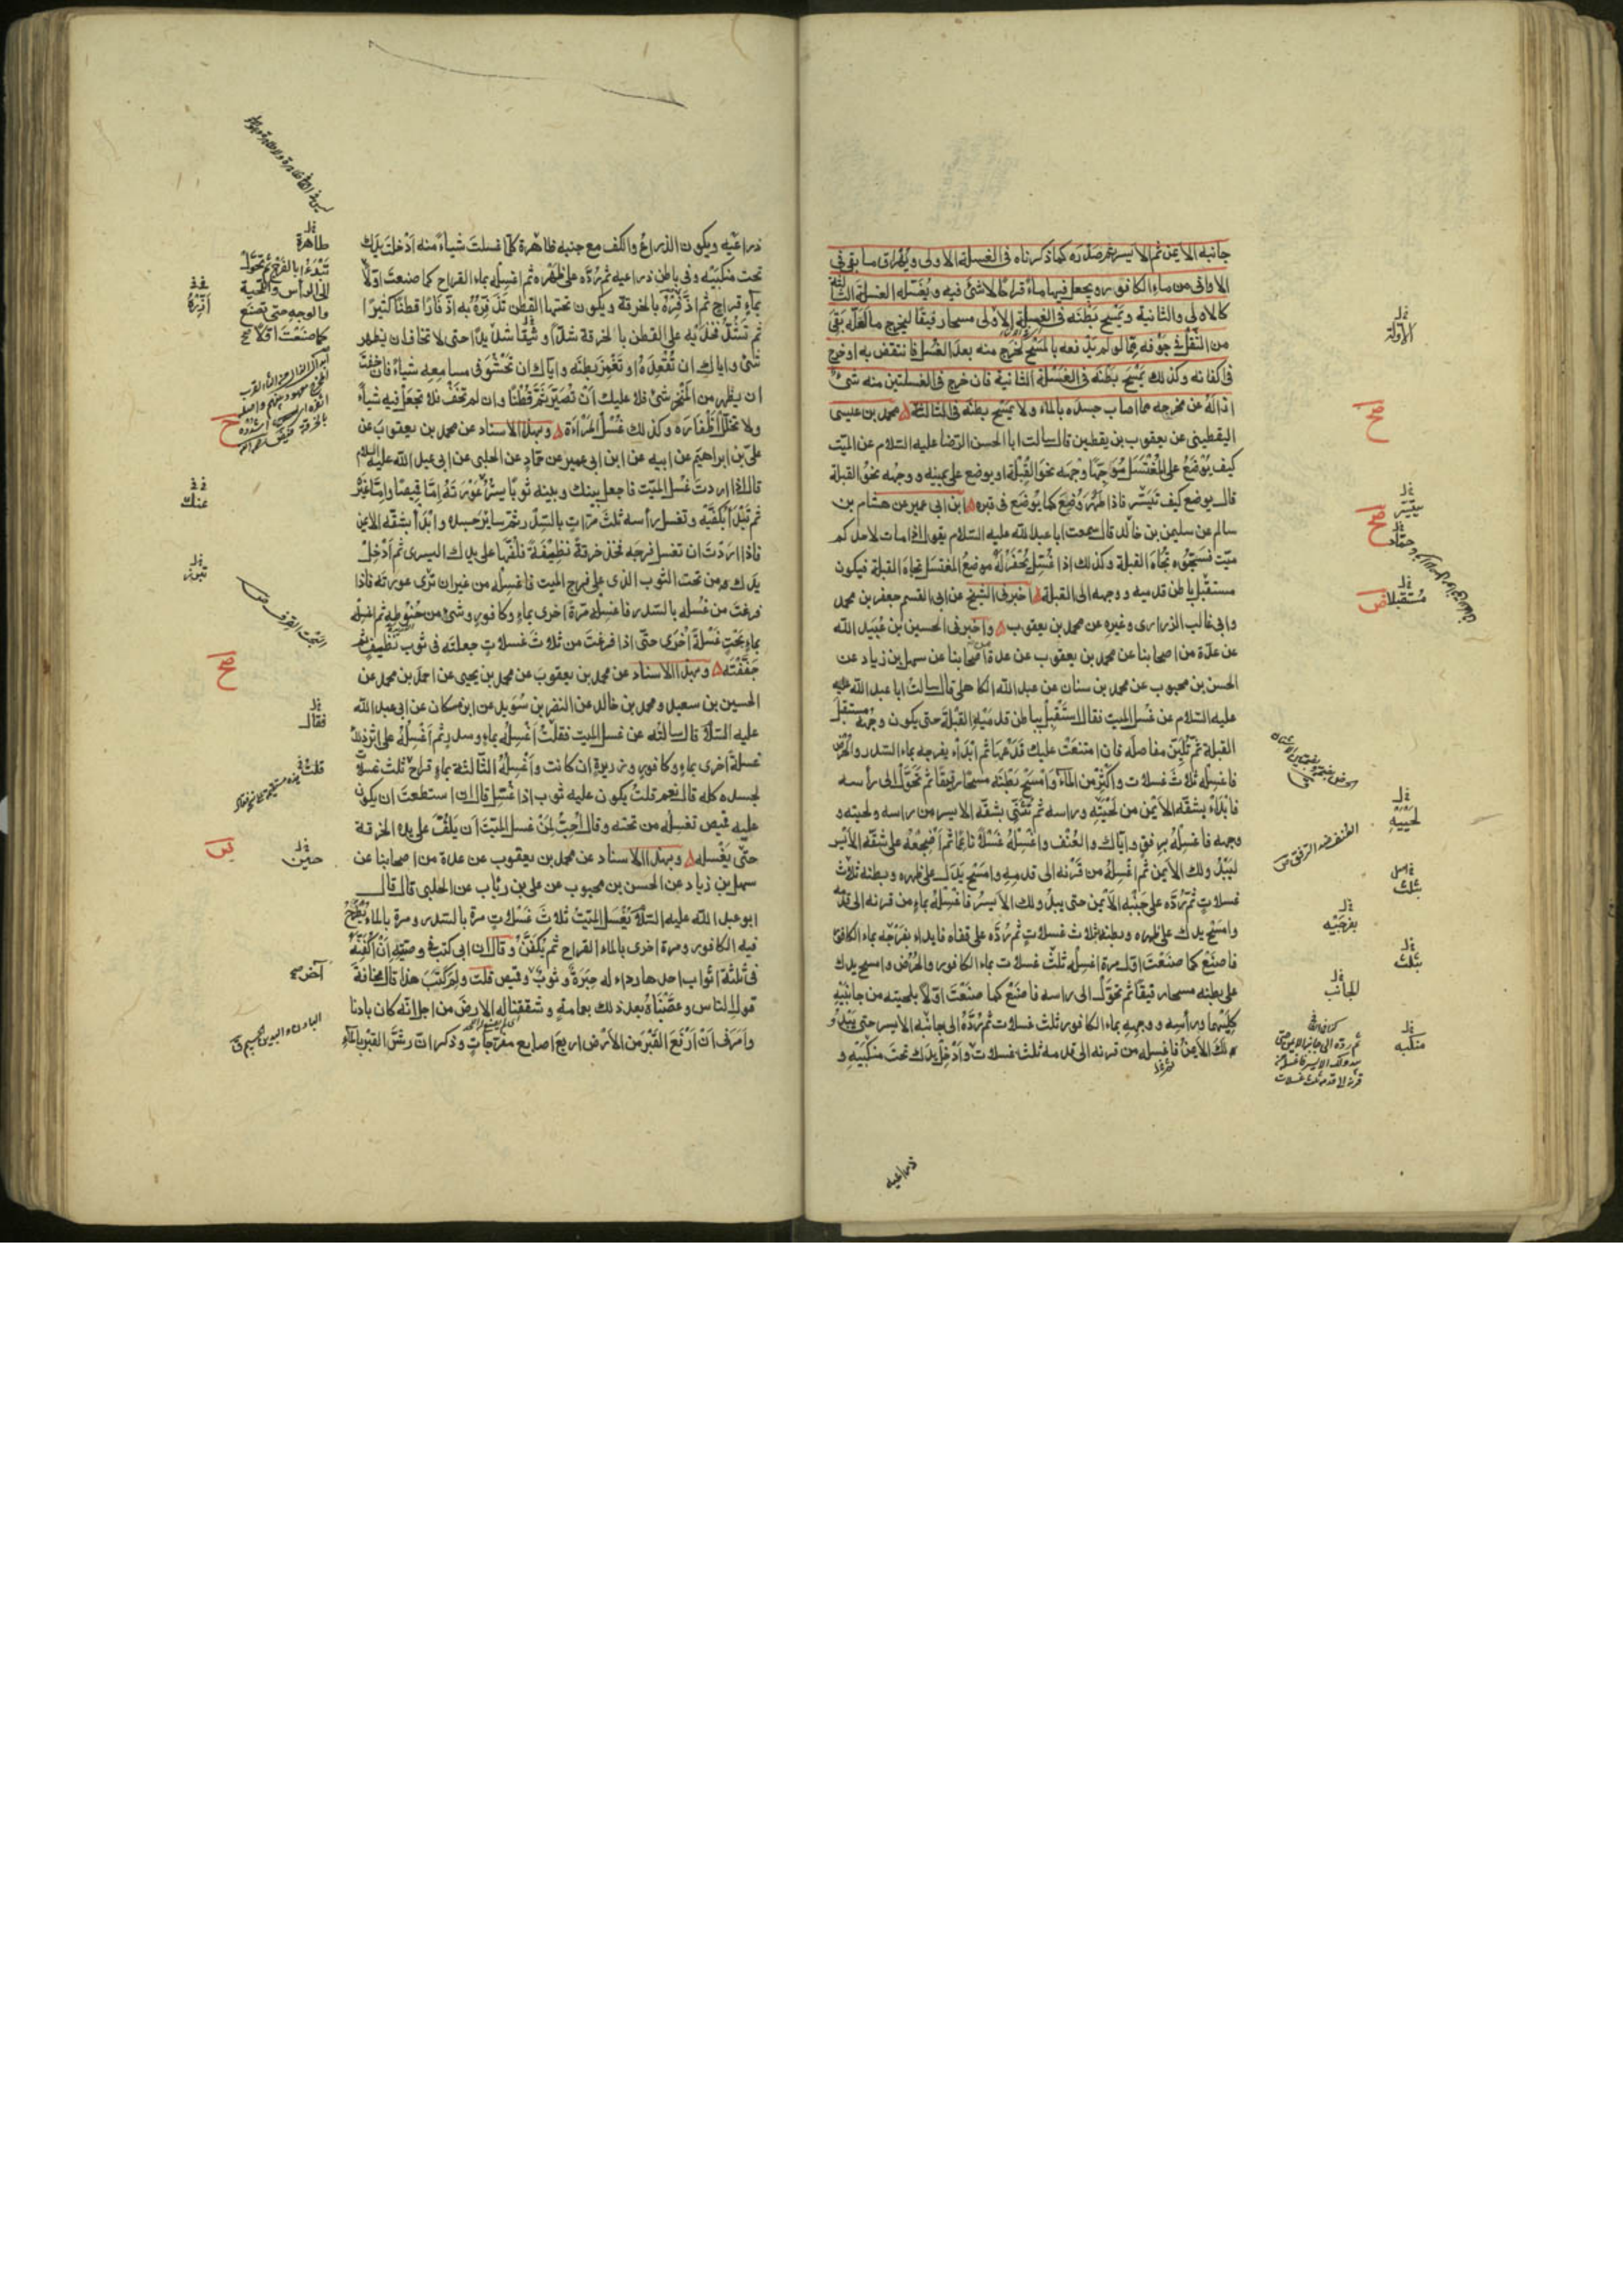 جانبه الايمن ثم الايسر ثم صدره كما ذكرناه فى الغسلة الاولى ويهراق ما بقى فى
الاوانى من ماء الكافور ويجعل فيها ماءً قراحًا لا شئ فيه ويغسله الغسلة الثالثة
كالاولى والثانية ويمسح بطنه فى الغسلة الاولى مسحا رفيقًا ليخرج ما لعله بقى
من الثفل فى جوفه مما لو لم يدفعه بالمسح لخرج منه بعد الغسل فانتقض به او خرج
فى اكفانه وكذلك يمسح بطنه فى الغسلة الثانية فان خرج فى الغسلتين منه شئ
ازاله عن مخرجه مما اصاب جسده بالماء ولا يمسح بطنه فى الثالثة محمد بن عيسى
اليقطينى عن يعقوب بن يقطين قال سالت ابا الحسن الرضا عليه السلام عن الميت
كيف يوضع على المغتسل موجها وجهه نحو القبلة او يوضع على يمينه ووجهه نحو القبلة
قال يوضع كيف تيسّر فاذا طهر وضع كما يوضع فى قبره ابن ابى عمير عن هشام بن
سالم عن سليمن بن خالد قال سمعت ابا عبد الله عليه السلام يقول اذا مات لاحدكم
ميت فسجّوه تجاه القبلة وكذلك اذا غسل يحفر له موضع المغتسل تجاه القبلة فيكون
مستقبل باطن قدميه ووجهه الى القبلة اخبرنى الشيخ عن ابى القسم جعفر بن محمد
وابى غالب الزرارى وغيره عن محمد بن يعقوب واخبرنى الحسين بن عبيد الله
عن عدّة من اصحابنا عن محمد بن يعقوب عن عدة من اصحابنا عن سهل بن زياد عن
الحسن بن محبوب عن محمد بن سنان عن عبد الله الكاهلى قال سالت ابا عبد الله عليه
عليه السلام عن غسل الميت فقال استقبل بباطن قدميه القبلة حتى يكون وجهه مستقبل
القبلة ثم تليّن مفاصله فان امتنعت عليك فدعها ثم ابدأ بفرجه بماء السدر والحرض
فاغسله ثلاث غسلات واكثر من الماء وامسح بطنه مسحًا رفيقًا ثم تحوّل الى رأسه
فابدأ بشقّه الايمن من لحيته وراسه ثم تثنّى بشقّه الايسر من راسه ولحيته و
وجهه فاغسله برفق واياك والعنف واغسله غسلًا ناعمًا ثم اضجعه على شقّه الايسر
ليبدُ ولك الايمن ثم اغسله من قرنه الى قدمه وامسح يدك على ظهره وبطنه ثلاث
غسلات ثم ردّه على جنبه الايمن حتى يبدُ ولك الايسر فاغسله بماء من قرنه الى قدمه
وامسح يدك على ظهره وبطنه ثلاث غسلات ثم ردّه على قفاه فابداء بفرجه بماء الكافور
فاصنع كما صنعت اوّل مرة اغسله ثلث غسلات بماء الكافور والحُرُض وامسح يدك
على بطنه مسحا رفيقًا ثم تحوّل الى راسه فاصنع كما صنعت اوّلًا بلحيته من جانبيه
كليهما وراسه ووجهه بماء الكافور ثلث غسلات ثم ردّه الى جانبه الايسر حتى يبدُ و
لك الايمن فاغسله من قرنه الى قدمه ثلث غسلات وادخل يدك تحت منكبيه و
ذراعيه
الاولة
تيسّر
حماد
مستقبلا
لحييه
بثلث
بفرجيه
بثلث
الجانب
منكبه
ثم ردّه الى جانبه الايمن حتى
يبدو لك الايسر فاغسله من
قرنه الى قدمه ثلث غسلات
ذراعيه ويكون الذراع والكف مع جنبه ظاهرة كلّما غسلت شياءً منه ادخلت يدك
تحت منكبيه وفى باطن ذراعيه ثم ردّه على ظهره ثم اغسله بماء القراح كما صنعت اوّلًا
بماءٍ قراح ثم اذفره بالخرقة ويكون تحتها القطن تذفره به اذفارًا قطنًا كثيرًا
ثم تشدّ فخذيه على القطن بالخرقة شدّا وثيقًا شديدًا حتى لا تخاف ان يظهر
شئ واياك ان تقعده او تغمز بطنه واياك ان تحشو فى مسامعه شياءً فان خفت
ان يظهر من المنخر شئ فلا عليك ان تصيّر ثمّ قطنًا وان لم تخف فلا تجعل فيه شياءً
ولا تخلل اظفاره وكذلك غسل المرأة وبهذا الاسناد عن محمد بن يعقوب عن
على بن ابراهيم عن ابيه عن ابن ابى عمير عن حمّاد عن الحلبى عن ابى عبد الله عليه السلام
قال اذا اردت غسل الميت فاجعل بينك وبينه ثوبًا يستر عورته إمّا قميصًا وإمّا غيره
ثم تبدأ بكفّيه وتغسل رأسه ثلث مرّات بالسدر ثم سائر جسده وابدأ بشقّه الايمن
فاذا اردت ان تغسل فرجه فخذ خرقة نظيفة فلفّها على يدك اليسرى ثم ادخل
يدك من تحت الثوب الذى على فرج الميت فاغسله من غير ان ترى عورته فاذا
فرغت من غسله بالسدر فاغسله مرّة اخرى بماء وكافور وشئ من حنوطه ثم اغسله
بماءٍ بحتٍ غسلةً اخرى حتّى اذا فرغت من ثلاث غسلات جعلته فى ثوب نظيف ثم
جفّفته وبهذا الاسناد عن محمد بن يعقوب عن محمد بن يحيى عن احمد بن محمد عن
الحسين بن سعيد ومحمد بن خالد عن النضر بن سويد عن ابن مسكان عن ابى عبد الله
عليه السلام قال سالته عن غسل الميت فقلت اغسله بماء وسدر ثم اغسله على اثر ذلك
غسلة اخرى بماء وكافور وذريرة ان كانت واغسله الثالثة بماء قراح ثلث غسلات
لجسده كله قال نعم قلت يكون عليه ثوب اذا غسّل قال ان استطعت ان يكون
عليه قميص تغسله من تحته وقال احبّ لمن غسل الميت ان يلفّ على يده الخرقة
حتّى يغسله وبهذا الاسناد عن محمد بن يعقوب عن عدة من اصحابنا عن
سهل بن زياد عن الحسن بن محبوب عن على بن رئاب عن الحلبى قال قال
ابو عبد الله عليه السلام يغسل الميت ثلاث غسلات مرة بالسدر ومرة بالماء يطرح
فيه الكافور ومرة اخرى بالماء القراح ثم يكفّن وقال ان ابى كتب فى وصيّته ان اكفّنه
فى ثلثة اثواب احدها رداء له حبرة وثوب وقميص قلت ولم كتب هذا قال مخافة
قول الناس وعصّبناه بعد ذلك بعمامة وشققنا له الارض من اجل انّه كان بادنا
وأمرنى ان ارفع القبر من الارض اربع اصابع مفرّجات وذكر انّ رشّ القبر بالماء
طاهرة
تبدء بالفرج ثم تحوّل
الى الراس واللحية
والوجه حتى تصنع
كما صنعت اوّلًا صح
عنك
فقال
قلت
حين